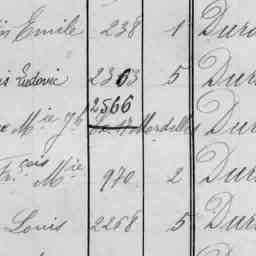 Emile 238 1 Dur
Ludovic 2363 5 Dur
2566
Mie Jh Mordelles Dur
Frçois Mie 970 2 Dur
Louis 2268 5 Dur